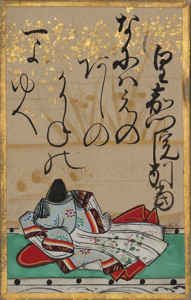 皇嘉門院別當
なにはえの
あしの
かりねの
一よ
ゆへ